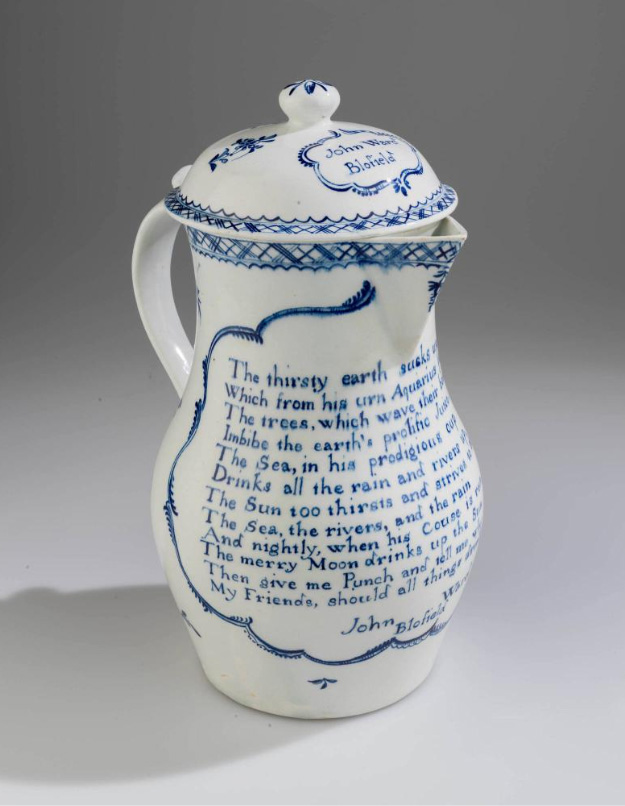 John
Blofield
The thirsty earth sucks
Which from his urn Aquarius
The trees, which wave their
Imbibe the earth's prolific
The Sea, in his prodigious
Drinks all the rain and rivers
The Sun too thirsts and strives
The Sea, the rivers, and the rain
And nightly, when his Couse is
The merry Moon drinks up the Sun
Then give me Punch and tell me
My Friends, should all things
John Blofield